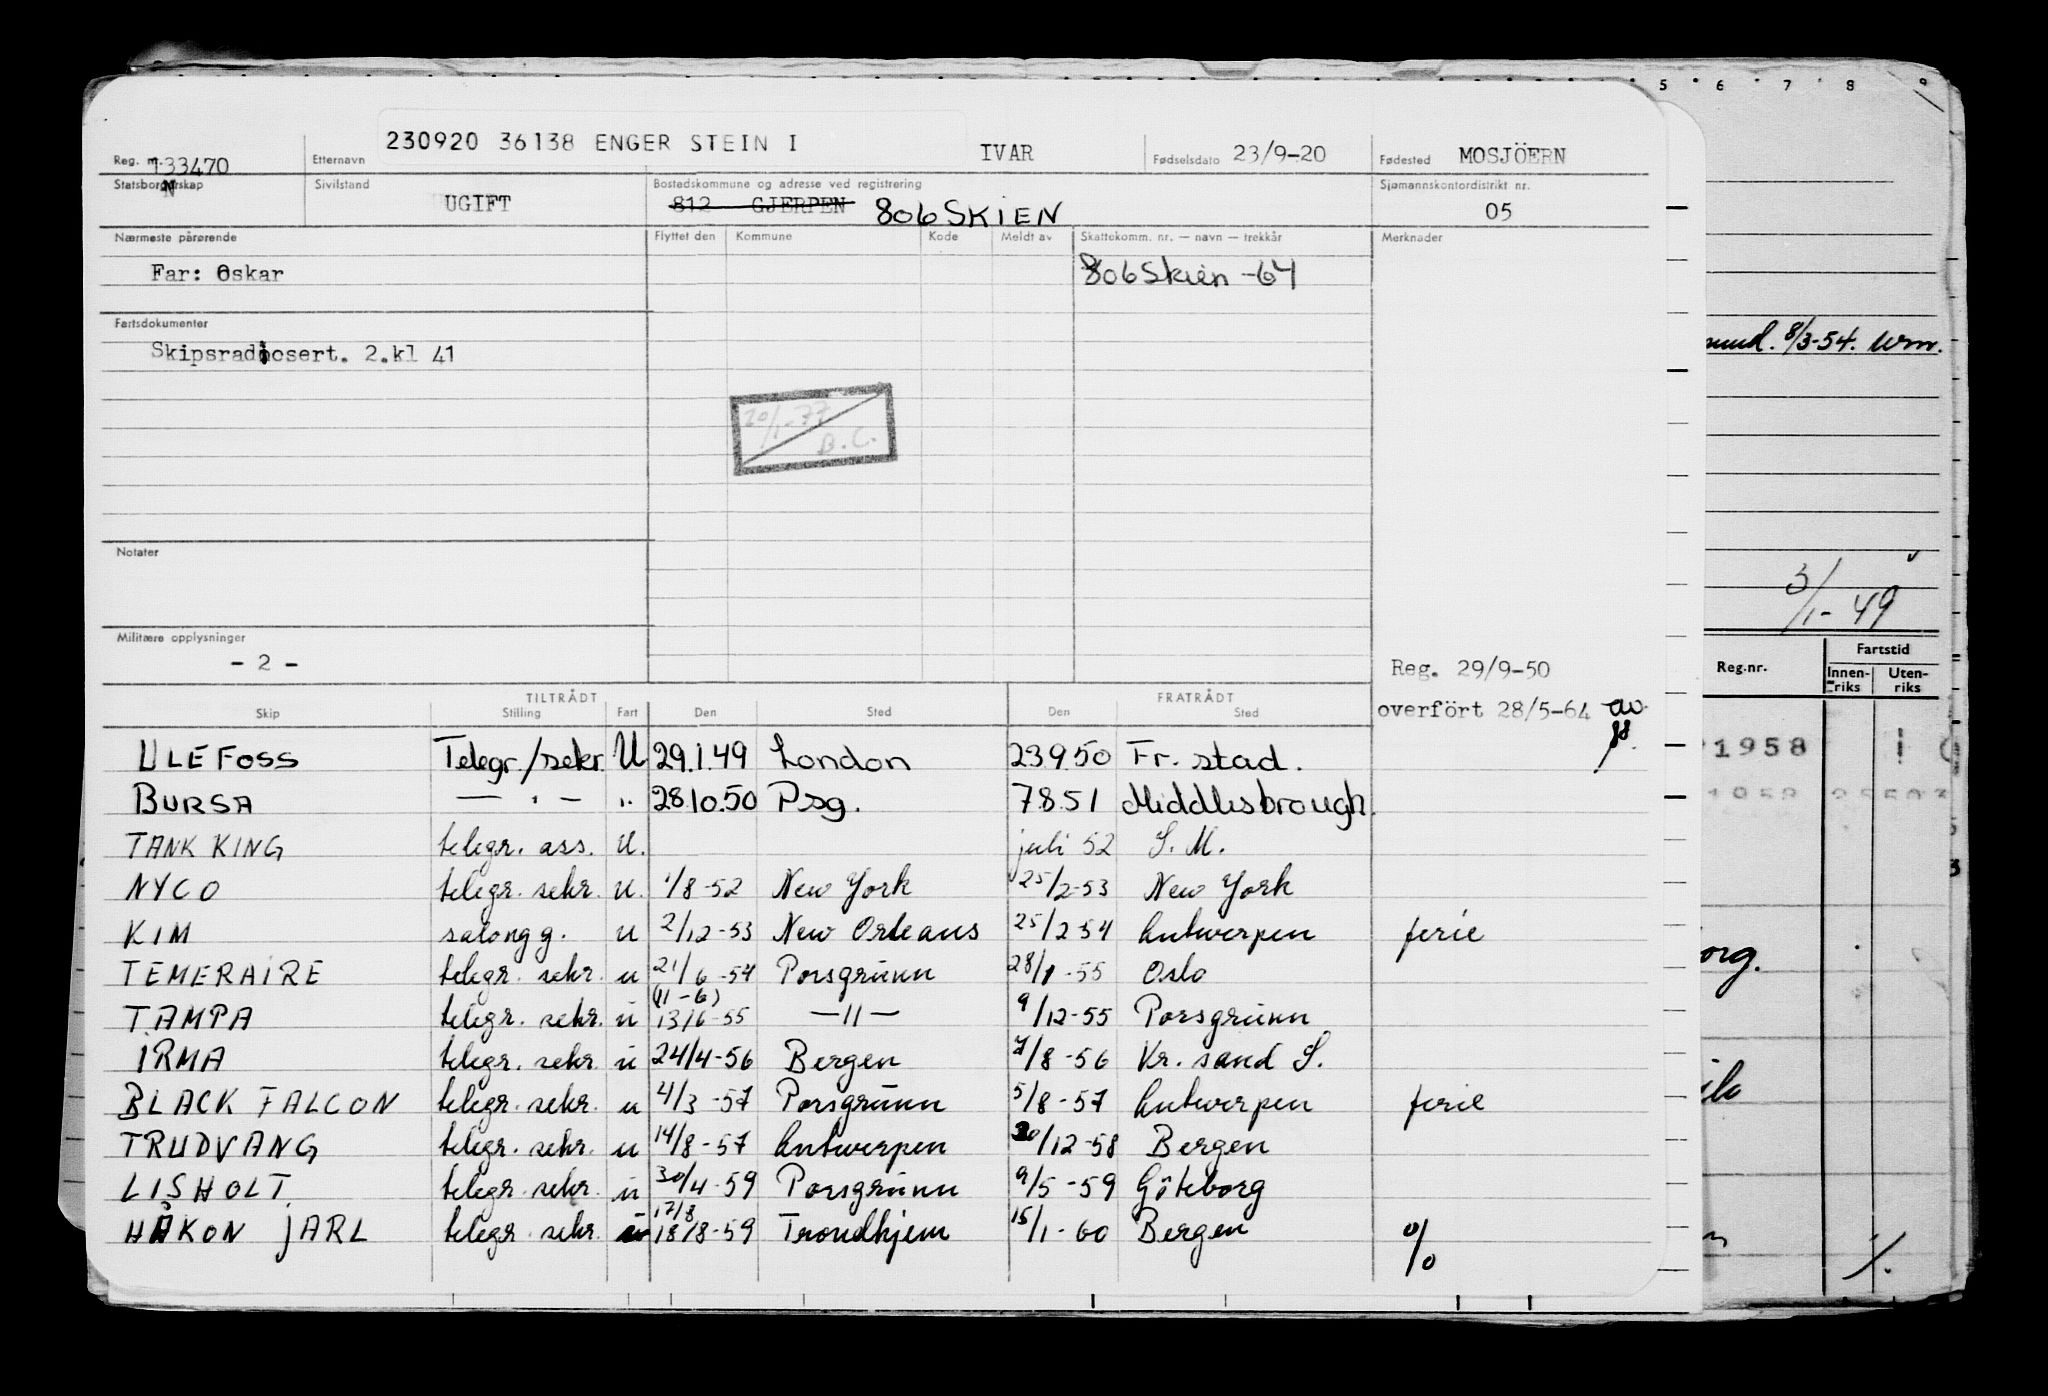 5 6 7 8 9
230920 36138 ENGER STEIN I
Reg. nr. 133470 Etternavn IVAR Fødselsdato 23/9-20 Fødested MOSJÖERN
Statsborgerskap N Sivilstand UGIFT Bostedskommune og adresse ved registrering 812 GJERPEN 806 SKIEN Sjømannskontordistrikt nr. 05
Nærmeste pårørende Flyttet den Kommune Kode Meldt av Skattekomm. nr. — navn — trekkår Merknader
Far: Oskar 806 Skien -64
Fartsdokumenter
Skipsradiosert. 2.kl 41
8/3-54.
20/1-77
B.C.
Notater
3/1-49
Militære opplysninger
- 2 -
Reg. 29/9-50
Reg.nr. Fartstid
Innen-riks Uten-riks
TILTRÅDT FRATRÅDT
Skip Stilling Fart Den Sted Den Sted
overfört 28/5-64 av
ULEFOSS Telegr./sekr. U 29.1.49 London 23.9.50 Fr. stad.
1958
BURSA — " — " 28.10.50 Psg. 7.8.51 Middlesbrough.
TANK KING telegr. ass. U. juli 52 S. M.
NYCO telegr. sekr. U. 1/8-52 New York 25/2-53 New York
KIM salongg. u 2/12-53 New Orleans 25/2 54 Antwerpen ferie
TEMERAIRE telegr. sekr. u 21/6-54 Porsgrunn 28/1-55 Oslo
(11-6)
TAMPA telegr. sekr. u 13/6-55 —11— 9/12-55 Porsgrunn
IRMA telegr. sekr. u 24/4-56 Bergen 7/8-56 Kr. sand S.
BLACK FALCON telegr. sekr. u 4/3-57 Porsgrunn 5/8-57 Antwerpen ferie
TRUDVANG telegr. sekr. u 14/8-57 Antwerpen 20/12-58 Bergen
LISHOLT telegr. sekr. u 30/4-59 Porsgrunn 9/5-59 Göteborg
17/8
HÅKON JARL telegr. sekr. 18/8-59 Trondhjem 15/1-60 Bergen %